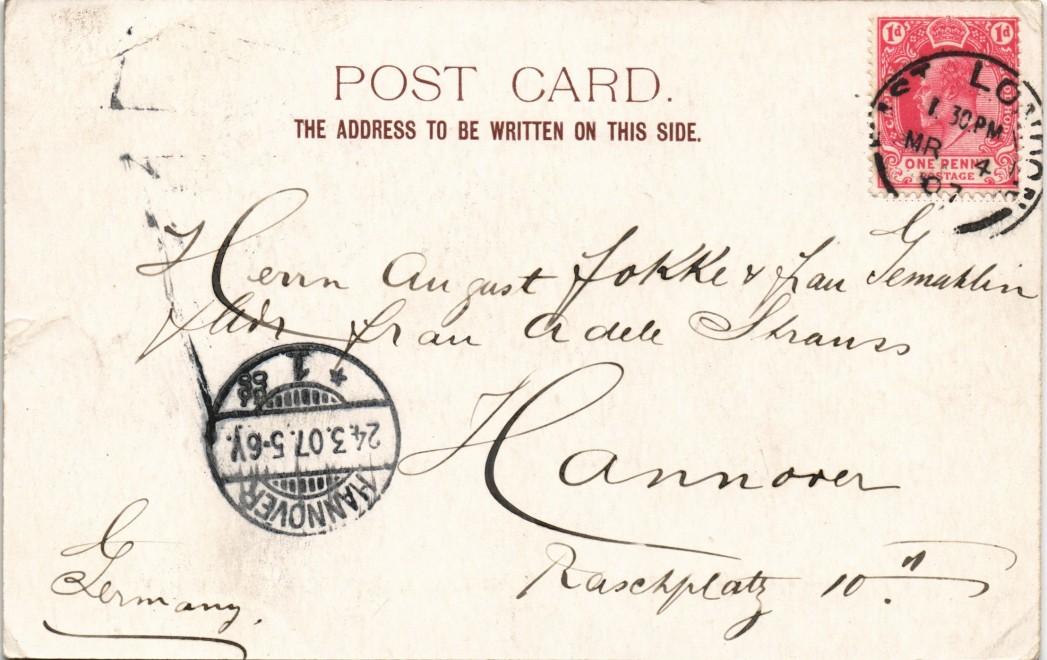 1d 1d
POST CARD.
THE ADDRESS TO BE WRITTEN ON THIS SIDE.
EAST LONDON
1.30.PM
MR 4
07
ONE PENNY
POSTAGE
Herrn August Fokke & Frau Gemahlin
Adr Frau Adele Strauss
Hannover
Raschplatz 10 II
Germany.
HANNOVER
24.3.07.5-6N.
* 1